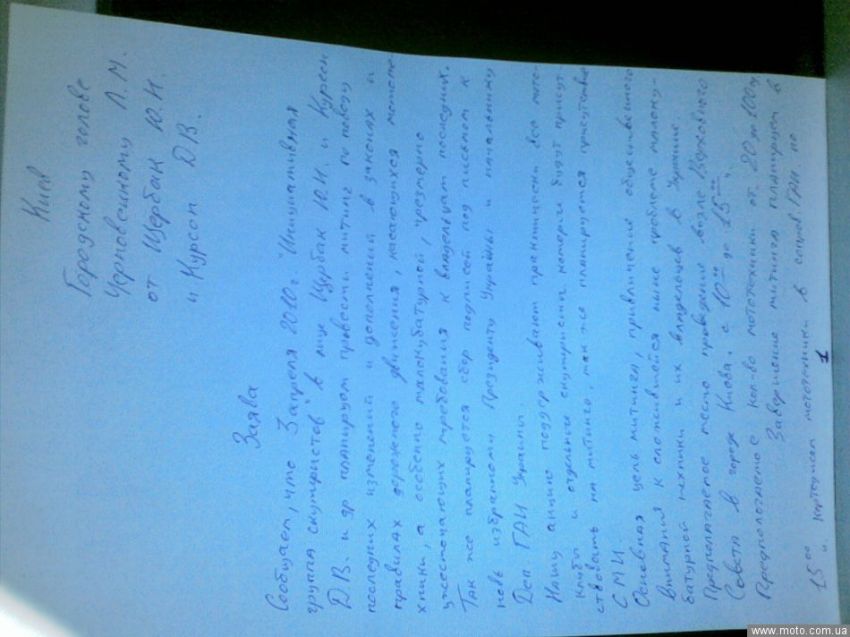 Киев
Городскому голове
Черновецкому Л.М.
от Щербак Ю.Н.
и Курсон Д.В.
Заява
Сообщаем, что 3 апреля 2010г. "Инициативная
группа скутеристов" в лице Щурбак Ю.Н. и Курсон
Д.В. и др планируем провести митинг по поводу
последних изменений и дополнений в законах и
правилах дорожного движения, касающихся мототе-
хники, а особенно малокубатурной, чрезмерно
ужесточающих требования к владельцам последних.
Так же планируется сбор подписей под письмом к
ново избранному Президенту Украины и начальнику
Деп. ГАИ Украины.
Нашу акцию поддерживают практически все мото-
клубы и отдельные скутеристы которые будут присут-
ствовать на митинге, так же планируется присутствие
СМИ.
Основная цель митинга, привлечение общественного
внимания к сложившейся ныне проблеме малоку-
батурной техники и их владельцев в Украине.
Предполагаемое место проведение возле Верховного
Совета в городе Киева. с 10⁰⁰ до 15⁰⁰.
Предпологаемое кол-во мототехники от 20 до
Завершение митинга планируем в
15⁰⁰ и кортежем мототехники в сопров ГАИ по
1
www.moto.com.ua